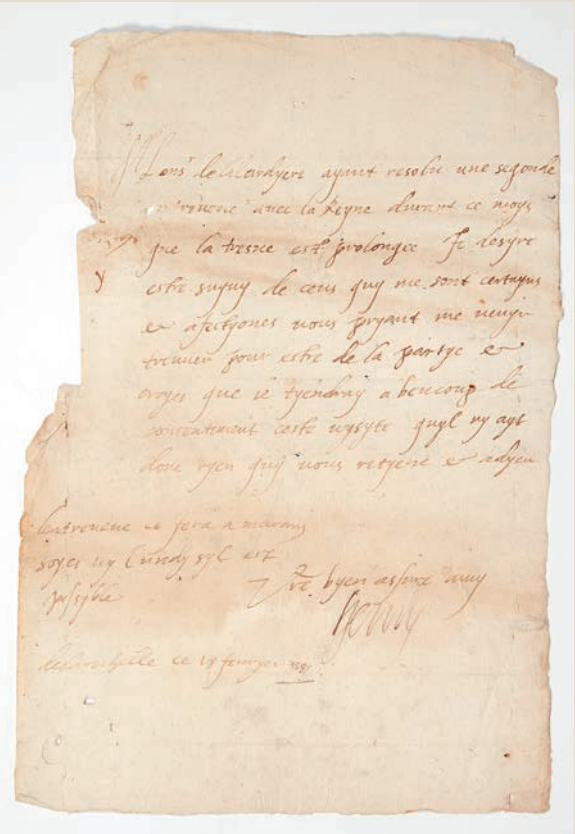 Monsr de lardyere ayant resolu une segonde
entreveue avec la Reyne durant ce moys
que la tresve est prolongee Je desyre
estre suyvy de ceus quy me sont certayns
& afectyones vous pryant me venyr
treuver pour estre de la partye &
croyes que ie tyendray a beaucoup de
contentement ceste vysyte quyl ny ayt
donc ryen quy vous retyene & adyeu
lentreveue ce fera a marans
soyes icy lundy syl est
posyble
Vre byen assure amy
Henry
de la rochelle ce 18 fevryer